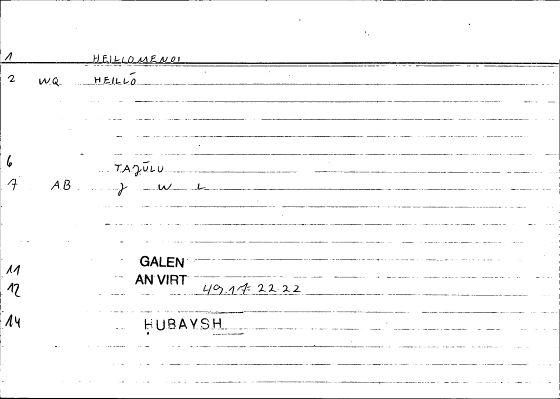 1 HEILLOMENOI
2 WQ HEILLŌ
6 TAJŪLU
7 AB J W L
11 GALEN
12 AN VIRT 49.17 22 22
14 ḤUBAYSH